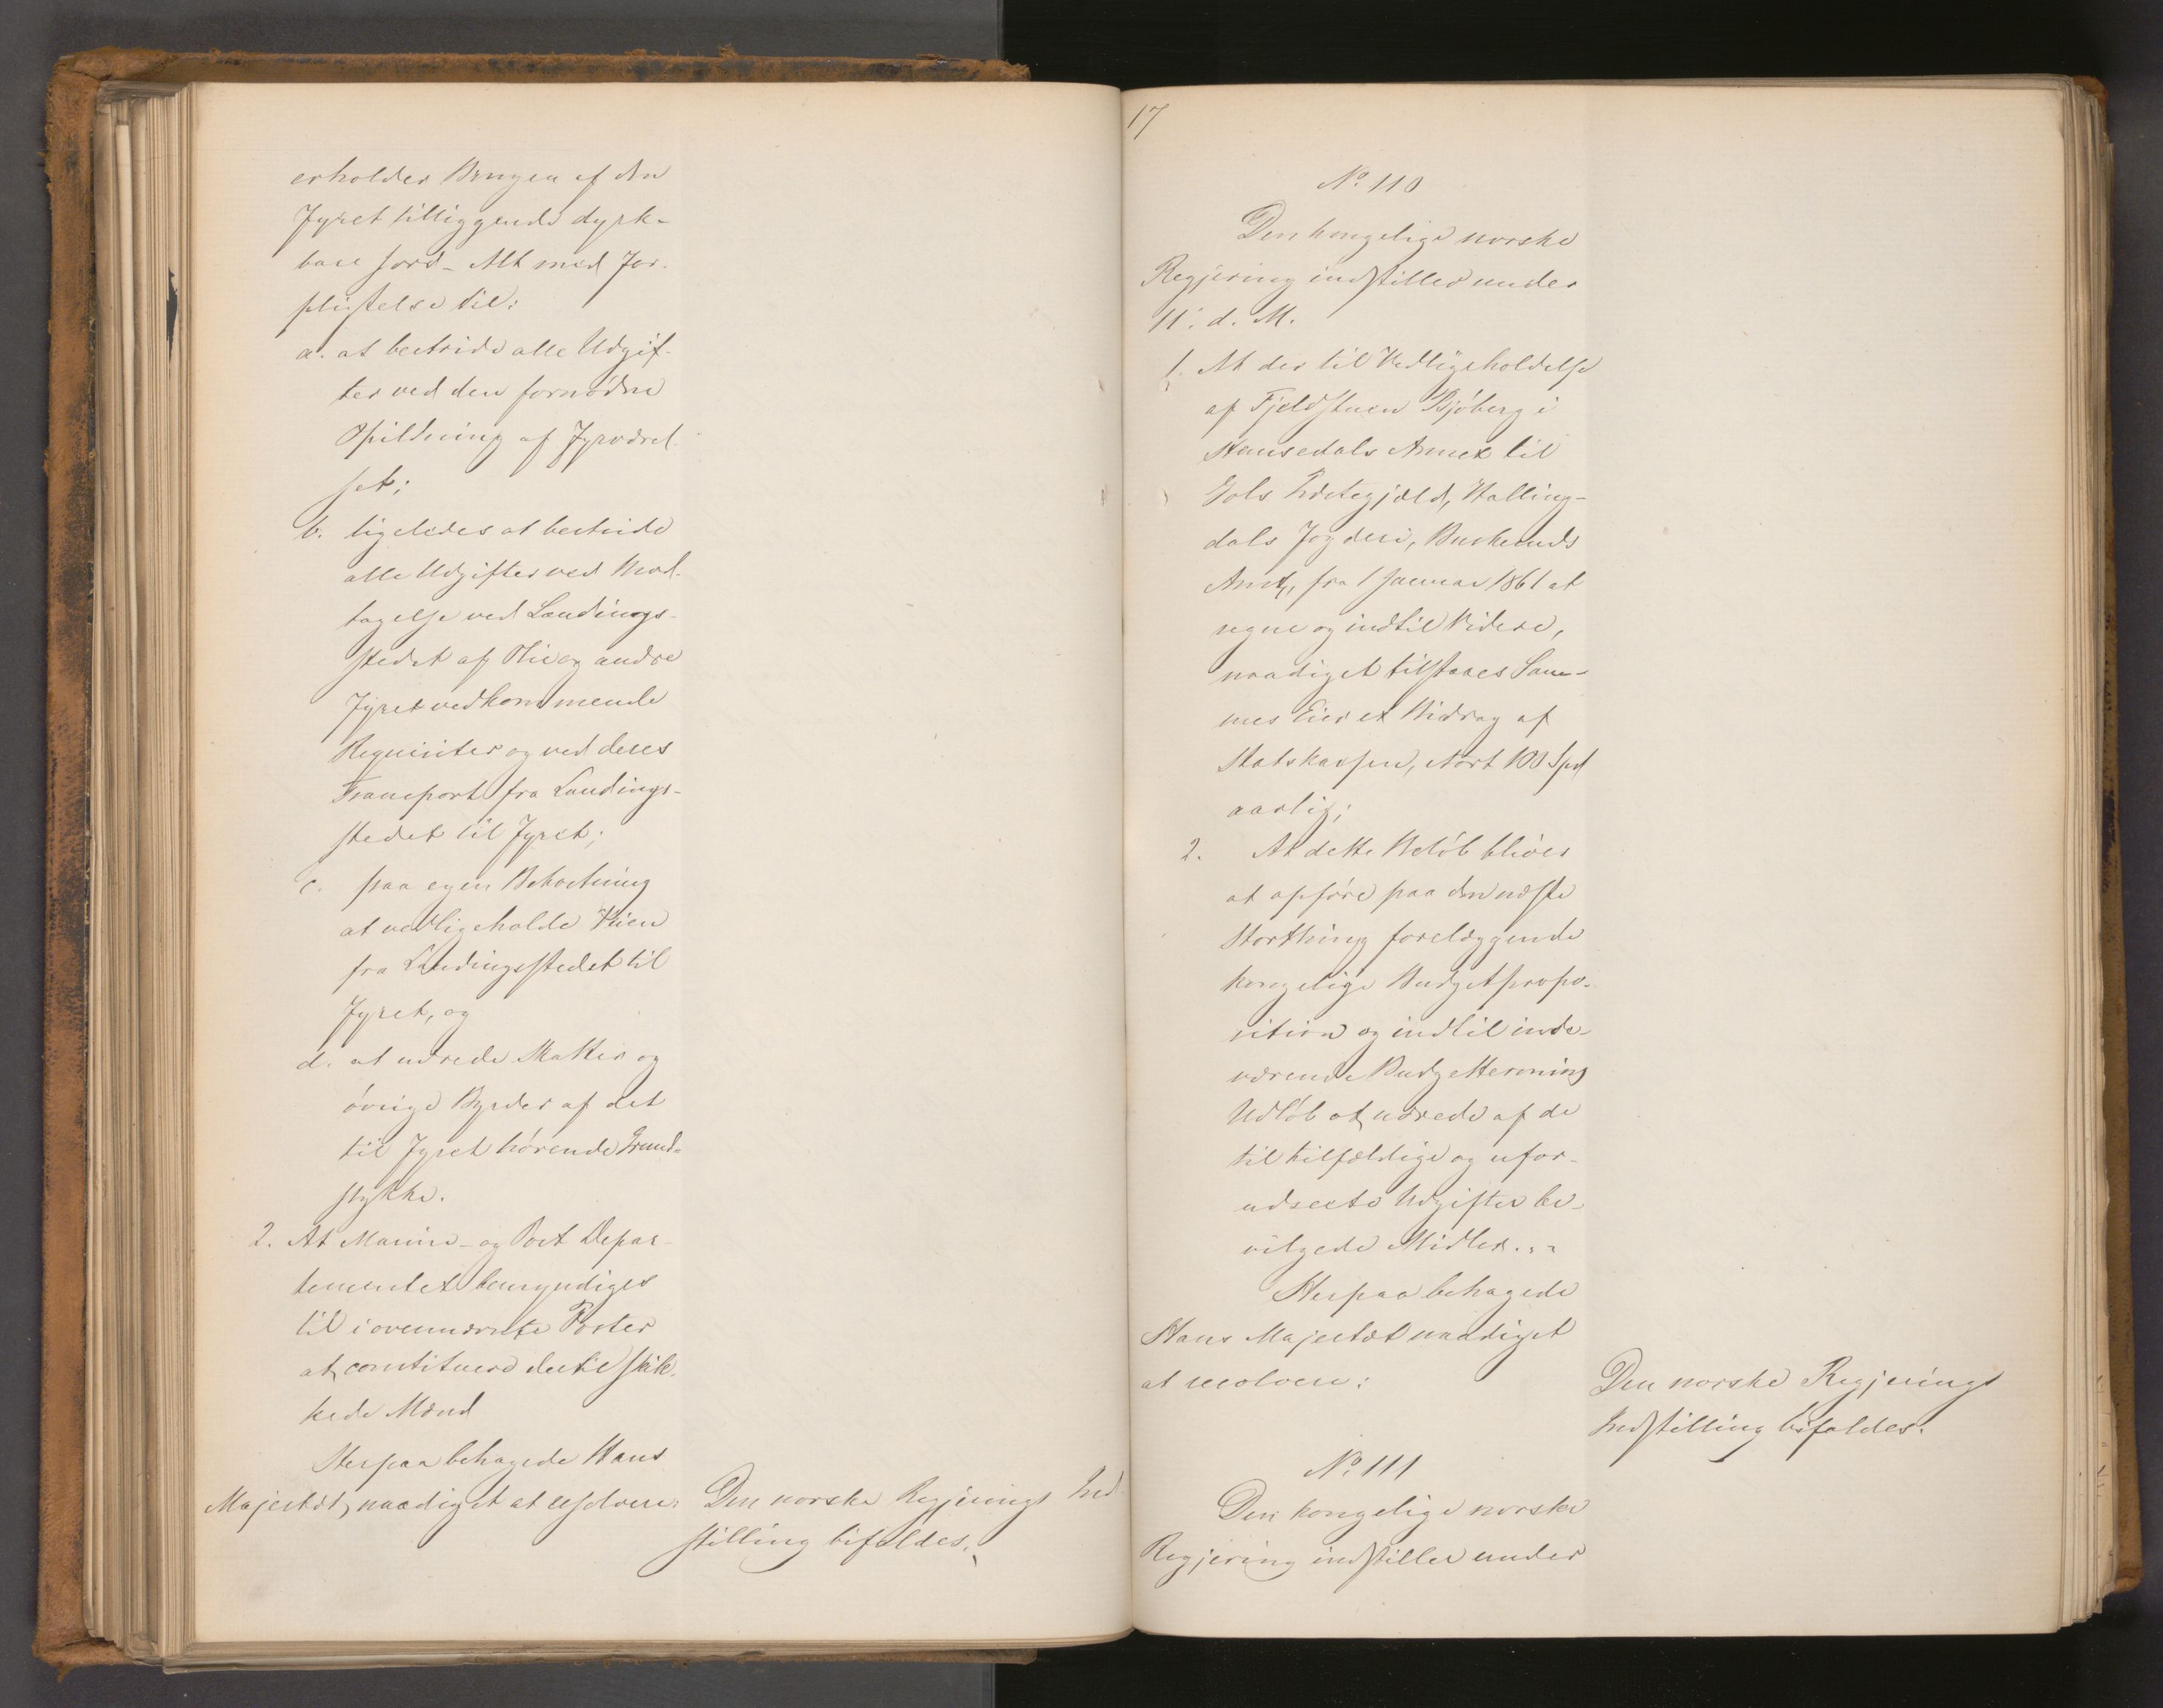 erholder Brugen af den
Fyret tilliggende dyrk-
bare Jord - Alt med For-
pligtelse til:
a. at bestride alle Udgif-
ter ved den fornødne
Opildning af Fyrværel-
set;
b. ligeledes at bestride
alle Udgifter ved Mod-
tagelse ved Landings-
stedet af Olie og andre
Fyret vedkommende
Requisiter og ved deres
Transport fra Landings-
stedet til Fyret;
c. paa egen Bekostning
at vedligeholde Veien
fra Landingsstedet til
Fyret, og
d. at udrede Skatter og
øvrige Byrder af det
til Fyret hørende Grund-
stykke.
2. At Marine- og Post Depar-
tementet bemyndiges
til i ovennævnte Poster
at constituere dertil skik-
kede Mænd
Herpaa behagede Hans
Majestæt, naadigst at resolvere:
Den norske Regjerings Ind-
stilling bifaldes.
17
No. 110
Den kongelige norske
Regjering indstiller under
11. d. M.
1. At der til Vedligeholdelse
af Fjeldstuen Bjøberg i
Hemsedals Annex til
Gols Præstegjæld, Halling-
dals Fogderi, Buskeruds
Amt, fra 1 Januar 1861 at
regne og indtil Videre,
naadigst tilstaaes Sam-
mes Eier et Bidrag af
Statskassen, stort 100 Spd
aarlig;
2. At dette Beløb bliver
at opføre paa den næste
Storthing forelæggende
kongelige Budgetpropo-
sition og indtil inde-
værende Budgettermins
Udløb at udrede af de
til tilfældige og ufor-
udseete Udgifter be-
vilgede Midler.
Herpaa behagede
Hans Majestæt naadigst
at resolvere:
Den norske Regjerings
Indstilling bifaldes.
No. 111
Den kongelige norske
Regjering indstiller under